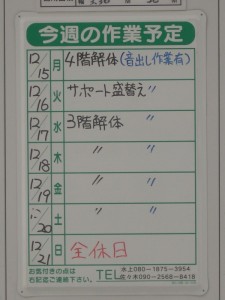 今週の作業予定
12/15 月 4階解体(音出し作業有)
12/16 火 サポート盛替え 〃
12/17 水 3階解体 〃
12/18 木 〃 〃
12/19 金 〃 〃
12/20 土 〃 〃
12/21 日 全休日
お気付きの点は
右記迄ご連絡下さい。
TEL
水上080-1875-3954
佐々木090-2568-8418